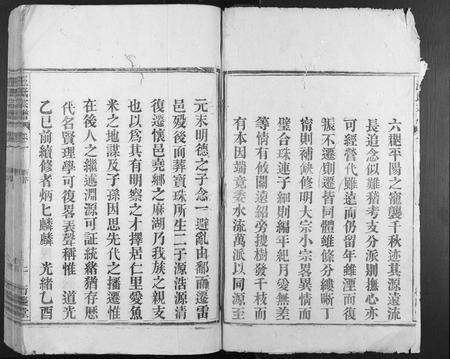 六龍平陽之寵襲千秋迹其源遠流
長追念似難稽考支分派則撫心亦
可經營代雖遠而仍留年雖湮而復
振不遷則遷皆同體維條分縷晰丁
甯則補缺修明大宗小宗畧異情而
璧合珠連子細則編年紀月愛無差
等情有攸關遠紹旁搜樹發千枝而
有本因端竟委水流萬派以同源至
元末明德之子念一避亂由鄱而遷雷
邑歿後而葬寶珠所生二子源浩源清
復遷懷邑堯鄉之麻湖乃我族之親支
也以是為其有明察之才擇居仁里愛魚
米之地謀及子孫因思先代之播遷惟
在後人之繼述淵源可証統緒猶存歷
代名賢理學可復畧表聲稱惟 道光
乙巳前續修者炳七麟麟 光緒乙酉